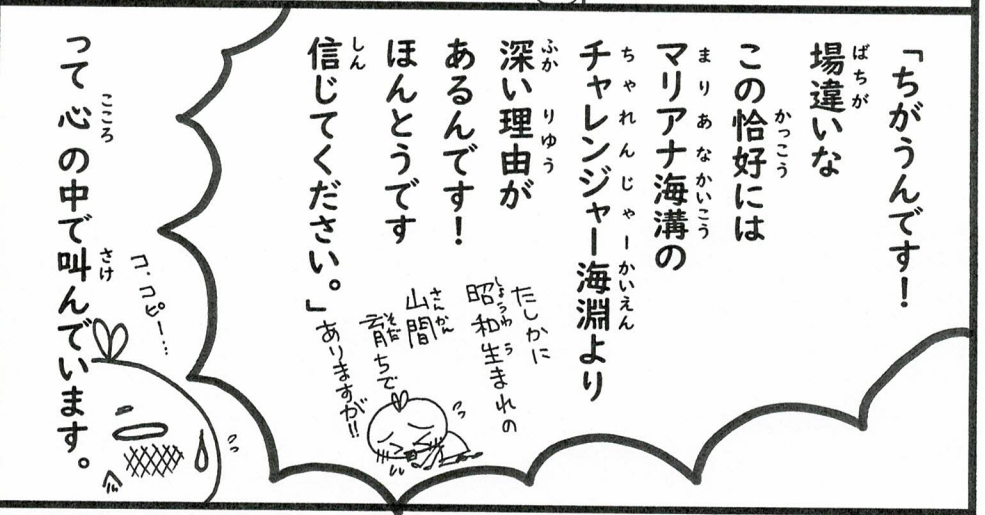 「ちがうんです!
場違いな
この恰好には
マリアナ海溝の
チャレンジャー海淵より
深い理由が
あるんです!
ほんとうです
信じてください。」
たしかに
昭和生まれの
山間
育ちで
ありますが!!
って心の中で叫んでいます。
コ、コピー…